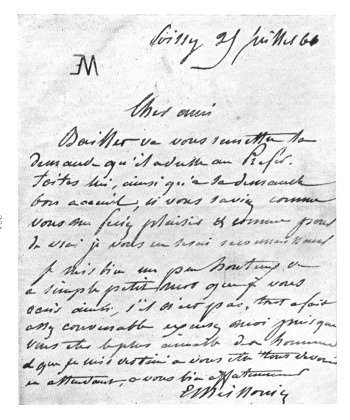 EM
Poissy 25 juillet 66
Cher ami
va vous remettre sa
demande qu'il adresse au Préfet.
faites lui, ainsi qu'à sa demande
bon accueil, si vous saviez comme
vous me ferez plaisir et comme pour
de vrai je vous en serai reconnaissant
Je suis bien un peu honteux de
ce simple petit mot que je vous
écris ainsi, s'il n'est pas tout à fait
assez convenable excusez moi puisque
vous êtes le plus aimable des hommes
et que je suis votre à vous
en attendant, à vous bien affectueusement
EMeissonier